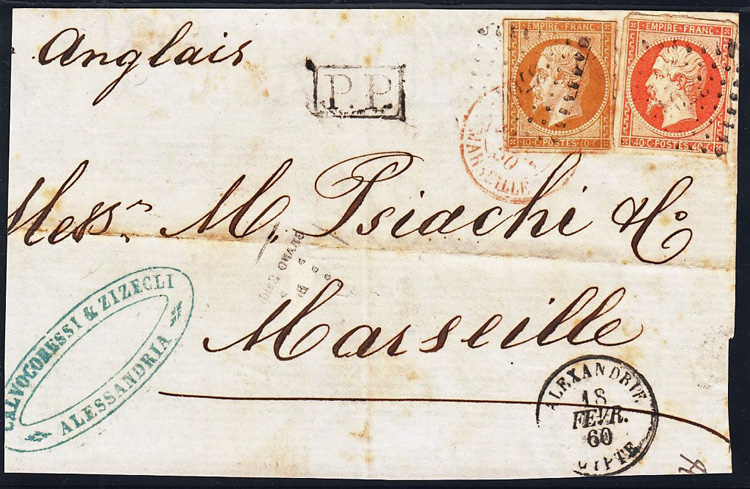 Anglais
P.P.
EMPIRE FRANC.
10 C. POSTES 10 C.
EMPIRE FRANC.
40 C. POSTES 40 C.
MARSEILLE
Mess.rs M. Psiachi & Co
Marseille
CALVOCORESSI & ZIZECLI
ALESSANDRIA
ALEXANDRIE
18
FEVR.
60
EGYPTE